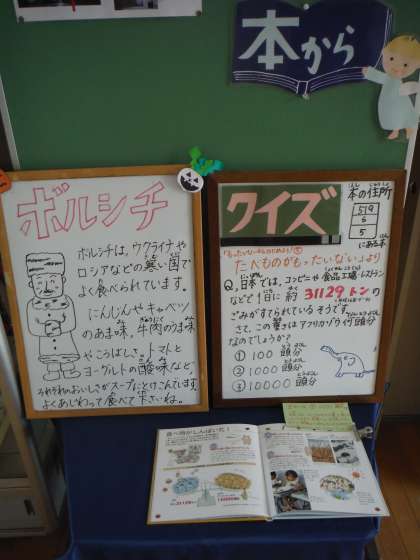 本から
ボルシチ
ボルシチは、ウクライナや
ロシアなどの寒い国で
よく食べられています。
にんじんやキャベツ
のあま味、牛肉のうま味
やこうばしさ、トマトと
ヨーグルトの酸味など、
それぞれのおいしさがスープにとけこんでいます。
よくあじわって食べて下さいね。
クイズ
本の住所
519
6
5
にある本
たべものがもったいない」より
Q.日本では、コンビニや食品工場・レストラン
などで1日に約31129トンの
ごみがすてられているそうです。
さて、この重さはアフリカゾウ何頭分
なのでしょうか?
① 100頭分
② 1000頭分
③ 10000頭分